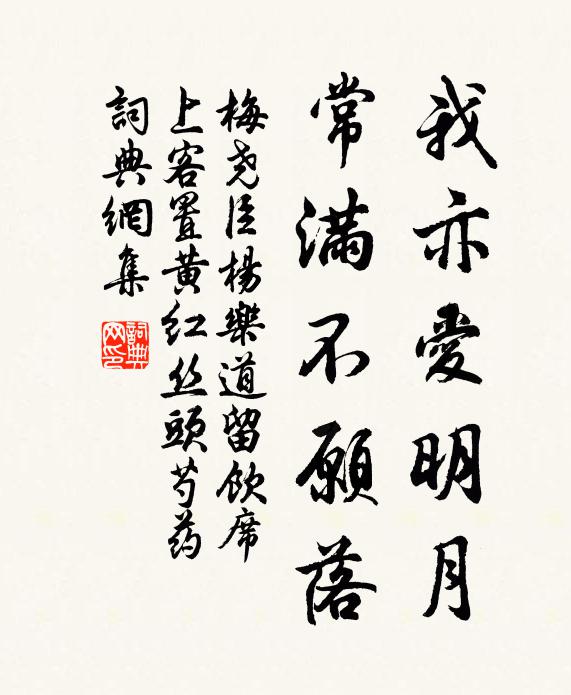 我亦愛明月
常滿不願落
梅尧臣楊樂道留飲席
上客置黄红丝頭芍药
詞典網集
詞典网印